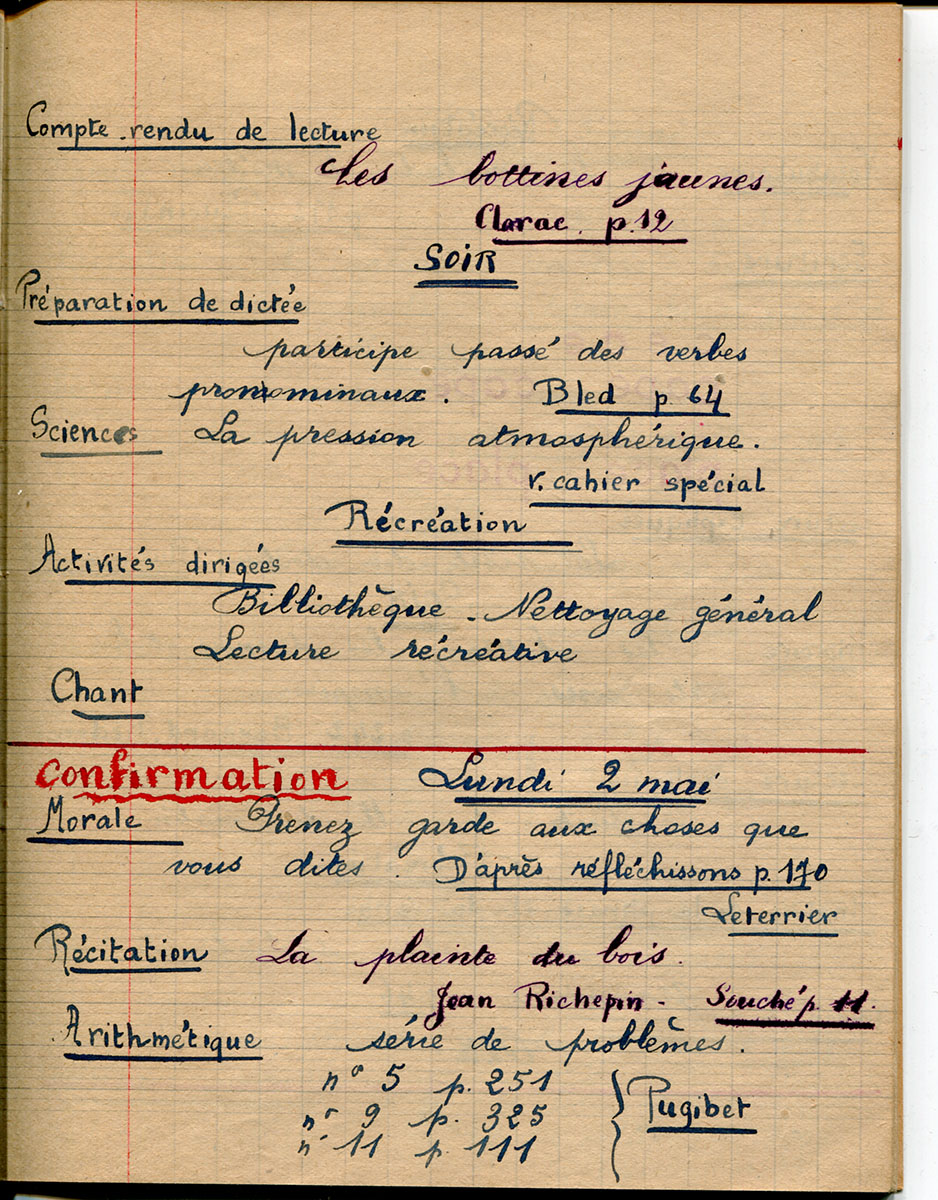 Compte-rendu de lecture
Les bottines jaunes.
Clarac. p.12
SOIR
Préparation de dictée
participe passé des verbes
pronominaux. Bled p 64
Sciences La pression atmosphérique.
v. cahier spécial
Récréation
Activités dirigées
Bibliothèque - Nettoyage général
Lecture récréative
Chant
Confirmation Lundi 2 mai
Morale Prenez garde aux choses que
vous dites. D'après réfléchissons p. 170
Leterrier
Récitation La plainte du bois.
Jean Richepin - Souché p. 11.
Arithmétique série de problèmes.
n° 5 p. 251
n° 9 p. 325 Pugibet
n° 11 p 111